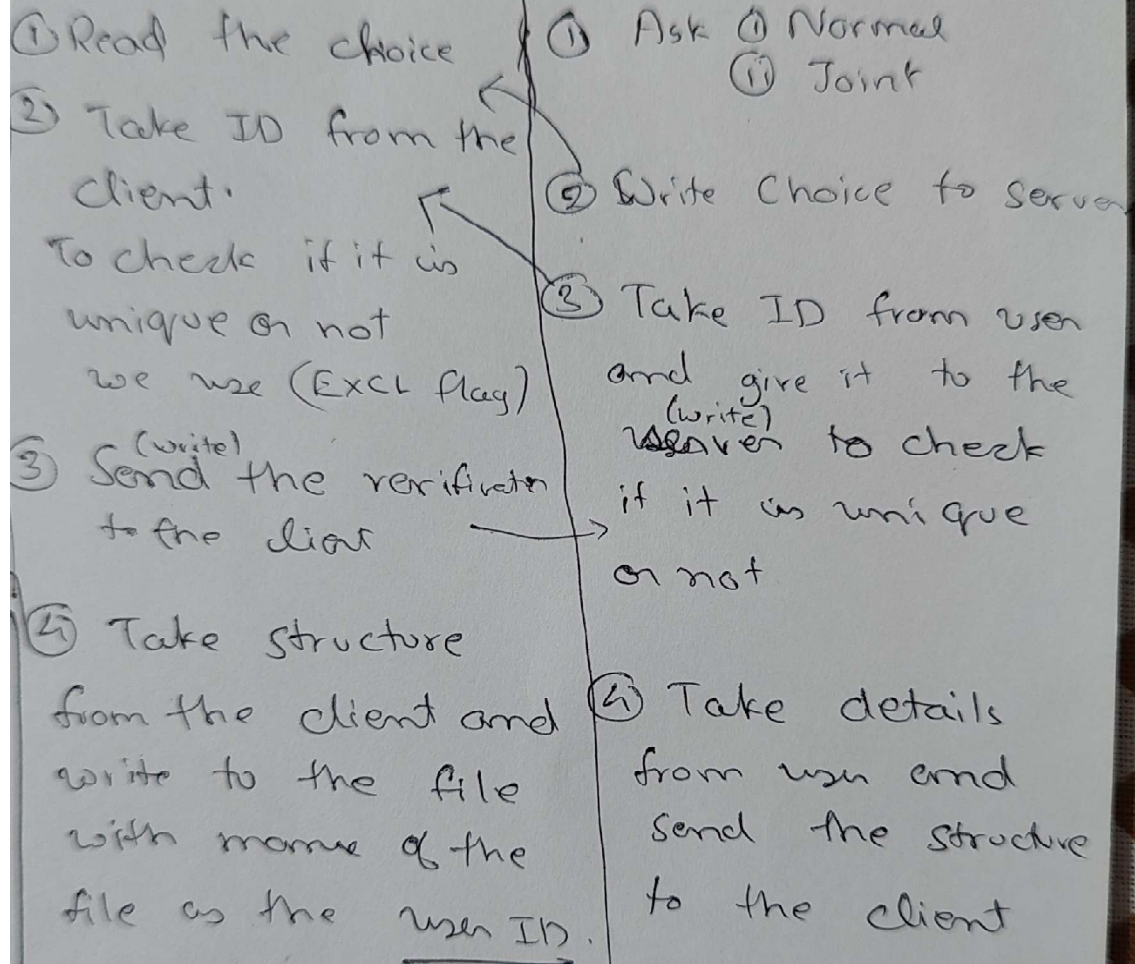 ① Read the choice
② Take ID from the
client.
To check if it is
unique or not
we use (EXCL flag)
(write)
③ Send the verification
to the client
④ Take structure
from the client and
write to the file
with name of the
file as the user ID.
① Ask ① Normal
⑪ Joint
② Write Choice to server
③ Take ID from user
and give it to the
(write)
server to check
if it is unique
or not
④ Take details
from user and
send the structure
to the client